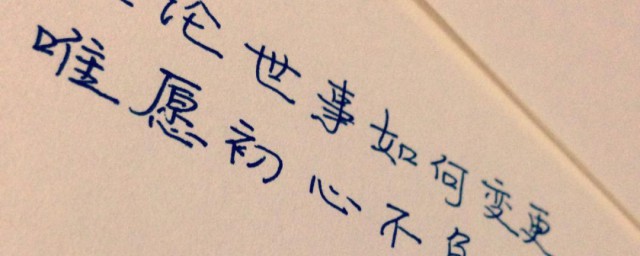 论世事如何变更
唯愿初心不